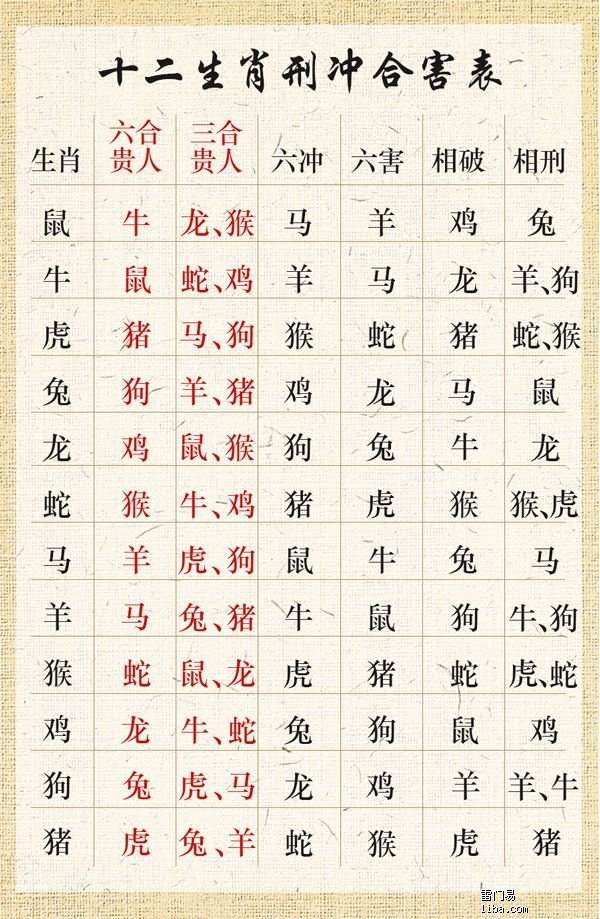 十二生肖刑冲合害表
六合 三合
生肖 贵人 贵人 六冲 六害 相破 相刑
鼠 牛 龙、猴 马 羊 鸡 兔
牛 鼠 蛇、鸡 羊 马 龙 羊、狗
虎 猪 马、狗 猴 蛇 猪 蛇、猴
兔 狗 羊、猪 鸡 龙 马 鼠
龙 鸡 鼠、猴 狗 兔 牛 龙
蛇 猴 牛、鸡 猪 虎 猴 猴、虎
马 羊 虎、狗 鼠 牛 兔 马
羊 马 兔、猪 牛 鼠 狗 牛、狗
猴 蛇 鼠、龙 虎 猪 蛇 虎、蛇
鸡 龙 牛、蛇 兔 狗 鼠 鸡
狗 兔 虎、马 龙 鸡 羊 羊、牛
猪 虎 兔、羊 蛇 猴 虎 猪
雷门易
liba.com